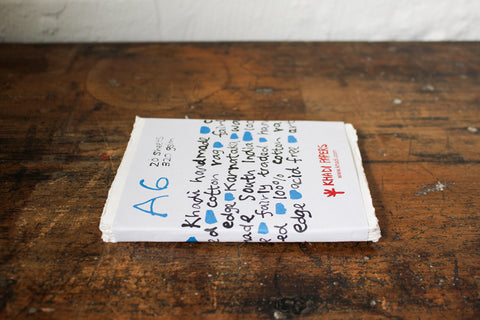 A6
20 sheets
Khadi handmade
ed cotton rag fair
edge Karnataka
ade South India
fairly traded
ed 100% cotton ra
edge acid free
KHADI PAPERS
www.khadi.com